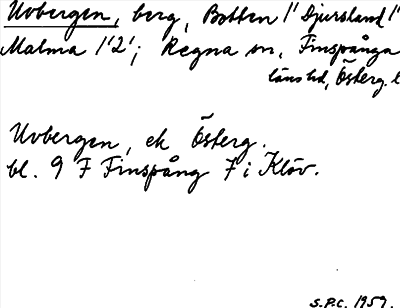 Uvbergen, berg, Botten 1' Djursland 1'
Malma 1'2'; Regna sn, Finspånga
länshd, Österg. l
Uvbergen, ek Österg.
bl. 9 F Finspång 7 i Klöv.
S.P.C. 1959.